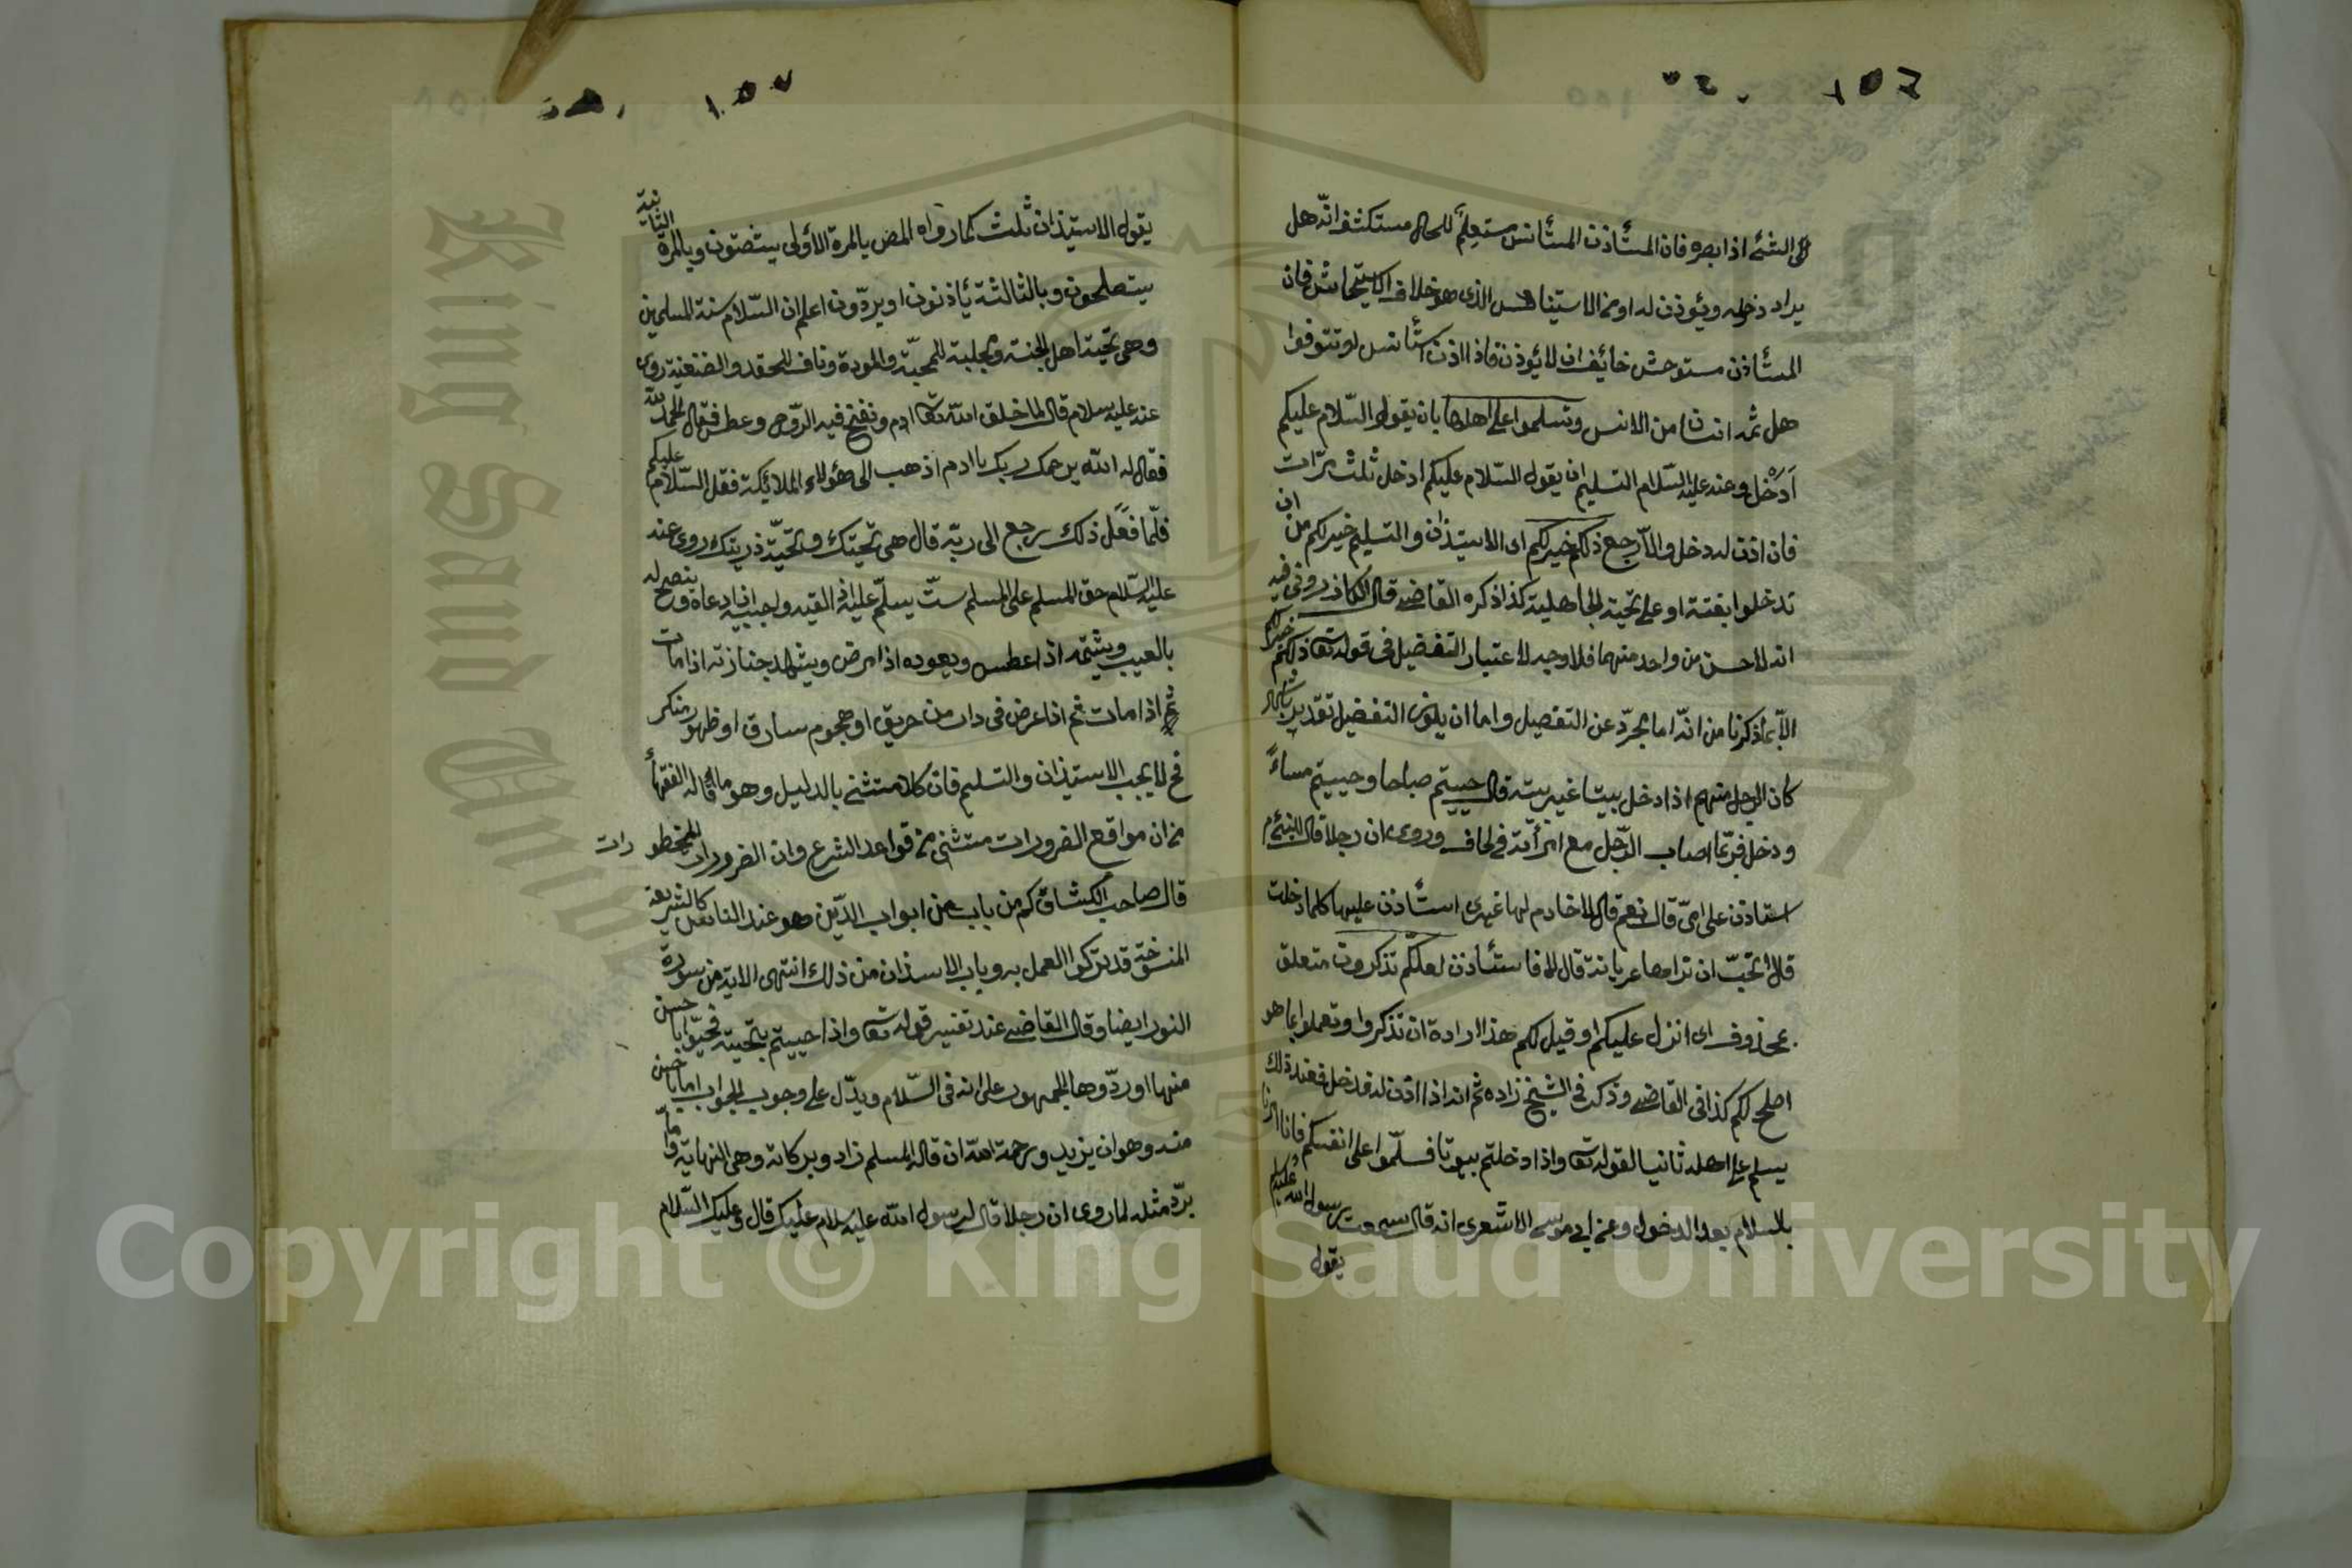 ١٥٦
الى الشئ اذا ابصره فان المستأذن المستأنس مستعلم للحال مستكشف انّه هل
يراد دخوله ويؤذن له او من الاستيناس الذى هو خلاف الاستيحاش فان
المستأذن مستوحش خائف ان لا يؤذن فاذا اذن استأنس او تتعرفوا
هل ثمه انسان من الانس وتسلموا على اهلها بان يقول السّلام عليكم
أدخل وعنه عليه السّلام التسليم ان يقول السّلام عليكم ادخل ثلث مرّات
فان اذن له دخل والّا رجع ذلكم خير لكم اى الاستيذان والتسليم خير لكم من ان
تدخلوا بغتة او على تحية الجاهلية كذا ذكره القاضى قال الكازرونى فيه
انه لا حسن من واحد منهما فلا وجه لاعتبار التفضيل فى قوله تعا ذلكم خير لكم
الّا بما ذكرنا من انّه اما مجرّد عن التفضيل واما ان يكون التفضيل تقديريا
كان الرجل منهم اذا دخل بيتا غير بيته قال حييتم صباحا وحييتم مساءً
ودخل فربّما اصاب الرّجل مع امرأته فى لحاف وروى ان رجلا قال للنبىّ م
استاذن على امىّ قال نعم قال لا خادم لها غيرى استأذن عليها كلما دخلت
قال أتحبّ ان تراها عريانة قال لا قال فاستأذن لعلكم تذكرون متعلق
بمحذوف اى انزل عليكم او قيل لكم هذا ارادة ان تذكروا وتعملوا بما هو
اصلح لكم كذا فى القاضى وذكر فى الشيخ زاده ثم انه اذا اذن له فدخل فعند ذلك
يسلم على اهله ثانيا لقوله تعا واذا دخلتم بيوتا فسلّموا على انفسكم فانا امرنا
بالسلام بعد الدخول وعن ابى موسى الاشعرى انه قال سمعت رسول الله عليه م
يقول
١٥٧
يقول الاستيذان ثلث كما رواه المص بالمرة الأولى يستنصتون وبالمرة الثانية
يستصلحون وبالثالثة يأذنون او يردّون اعلم ان السّلام سنة المسلمين
وهى تحية اهل الجنة ومجلبة للمحبّة والمودة وناف للحقد والضغنية روى
عنه عليه سلام قال لما خلق الله تعا ادم ونفخ فيه الرّوح وعطس فقال الحمد لله
فقال له الله يرحمك ربك يا ادم اذهب الى هؤلاء الملائكة فقل السّلام عليكم
فلمّا فعل ذلك رجع الى ربّه قال هى تحيتك وتحيّة ذريتك روى عنه
عليه السّلام حق المسلم على المسلم ستّ يسلّم عليه اذا لقيه ويجيبه اذا دعاه وينصح له
بالغيب ويشتمه اذا عطس ويعوده اذا مرض ويشهد جنازته اذا مات
ثم اذا مات ثم اذا عرض فى دار من حريق او هجوم سارق او ظهور منكر
فح لا يجب الاستيذان والتسليم فان كلا مستثنى بالدليل وهو ما قاله الفقهأ
من ان مواقع الضرورات مستثنى من قواعد الشرع وان الضرورات المحظورات
قال صاحب الكشاف كم من باب من ابواب الدّين هو عند الناس كالشريعة
المنسوخة قد تركوا العمل به وباب الاستيذان من ذلك انتهى الاية من سورة
النور ايضا وقال القاضى عند تفسير قوله تعا واذا حييتم بتحية فحيّوا باحسن
منها او ردّوها الجمهور على انه فى السّلام ويدّل على وجوب الجواب اما باحسن
منه وهو ان يزيد ورحمة الله ان قاله المسلم زاد وبركاته وهى النهاية واما
بردّ مثله لما روى ان رجلا قال لرسول الله عليه سلام عليك قال وعليك السّلام
King Saud University
Copyright © King Saud University